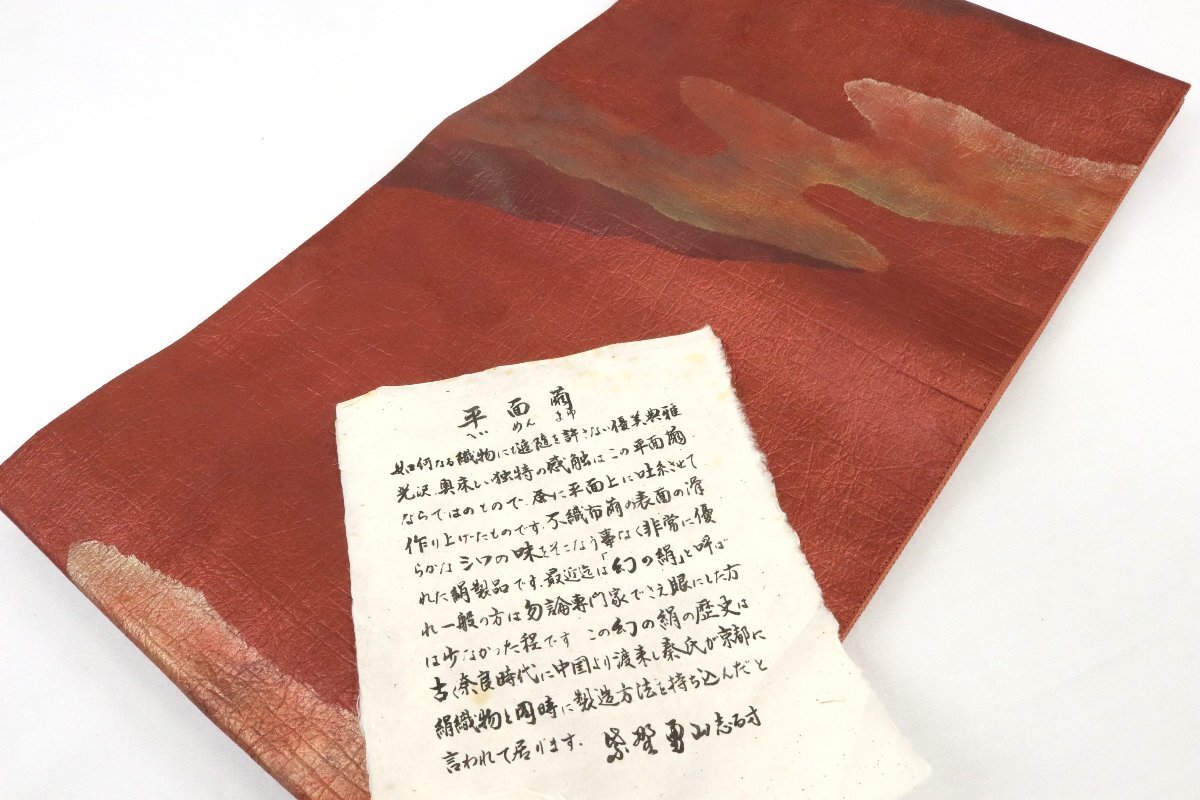 平面繭
へいめんまゆ
如何なる織物にも追随を許さない優美典雅
光沢、奥床しい独特の感触はこの平面繭
ならではのもので、蚕に平面上に吐糸させて
作り上げたものです。不織布繭の表面の滑
らかなシワの味をそこなう事なく非常に優
れた絹製品です。最近迄は「幻の絹」と呼ば
れ一般の方は勿論専門家でさえ眼にした方
は少なかった程です この幻の絹の歴史は
古く奈良時代に中国より渡来し秦氏が京都に
絹織物と同時に製造方法を持ち込んだと
言われて居ります。
紫野